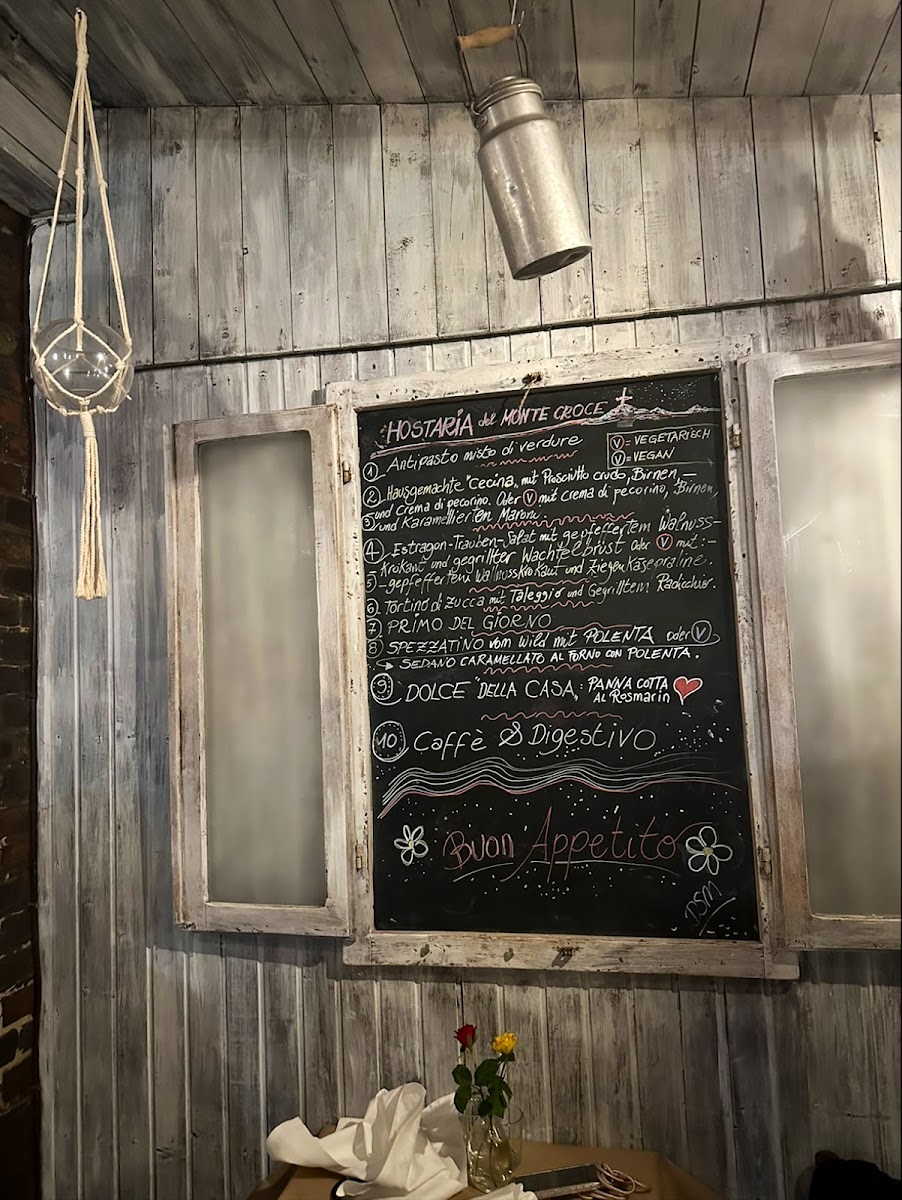 HOSTARIA del MONTE CROCE
V = VEGETARISCH
V = VEGAN
1 Antipasto misto di verdure
2 Hausgemachte "Cecina, mit Prosciutto crudo, Birnen
und Crema di pecorino. Oder V mit crema di pecorino, Birnen,
3 und Karamellierten Maroni.
4 Estragon-Trauben-Salat mit gepfeffertem Walnuss-
- Krokant und gegrillter Wachtelbrust oder V mit:-
5 - gepfeffertem Walnusskrokant und Ziegenkäsepraline.
6 Tortino di zucca mit Taleggio und Gegrilltem Radicchio.
7 PRIMO DEL GIORNO
8 SPEZZATINO vom Wild mit POLENTA oder V
→ SEDANO CARAMELLATO AL FORNO CON POLENTA.
9 DOLCE "DELLA CASA,: PANNA COTTA
AL Rosmarin
10 Caffè & Digestivo
Buon Appetito
DSM